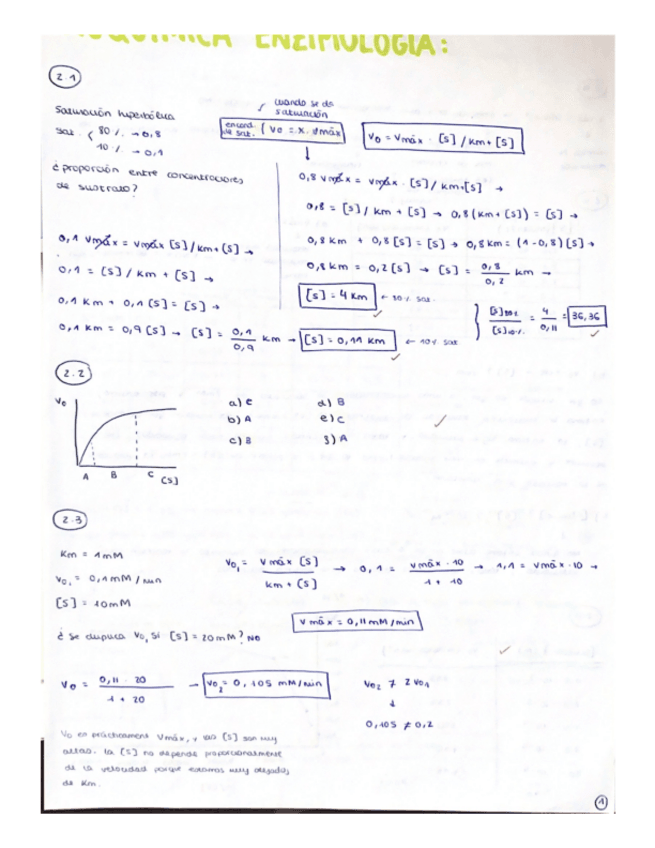 BIOQUÍMICA ENZIMOLOGÍA:
2.1
Saturación hiperbólica
sat. { 80 % → 0,8
10 % → 0,1
¿ proporción entre concentraciones
de sustrato?
cuando se da
saturación
encond. de sat. { Vo = x. vmáx
Vo = Vmáx · [S] / Km + [S]
0,8 Vmáx = Vmáx · [S] / Km+[S] →
0,8 = [S] / Km + [S] → 0,8 (Km + [S]) = [S] →
0,8 Km + 0,8 [S] = [S] → 0,8 Km = (1-0,8) [S] →
0,8 Km = 0,2 [S] → [S] = 0,8 / 0,2 Km →
[S] = 4 Km ← 80 % sat.
0,1 Vmáx = Vmáx [S] / Km + [S] →
0,1 = [S] / Km + [S] →
0,1 Km + 0,1 [S] = [S] →
0,1 Km = 0,9 [S] → [S] = 0,1 / 0,9 Km → [S] = 0,11 Km ← 10% sat
} [S]80% / [S]10% = 4 / 0,11 = 36,36
2.2
Vo
A B C [S]
a) C d) B
b) A e) C
c) B f) A
2.3
Km = 1mM
Vo₁ = 0,1 mM / min
[S] = 10mM
Vo₁ = Vmáx [S] / Km + [S] → 0,1 = Vmáx · 10 / 1 + 10 → 1,1 = Vmáx · 10 →
Vmáx = 0,11 mM/min
¿ se duplica Vo, si [S] = 20mM? NO
Vo = 0,11 · 20 / 1 + 20 → Vo₂ = 0,105 mM/min
Vo₂ ≠ 2 Vo₁
↓
0,105 ≠ 0,2
Vo es prácticament Vmáx, y las [S] son muy
altas. La [S] no depende proporcionalmente
de la velocidad porque estamos muy alejados
de Km.
1